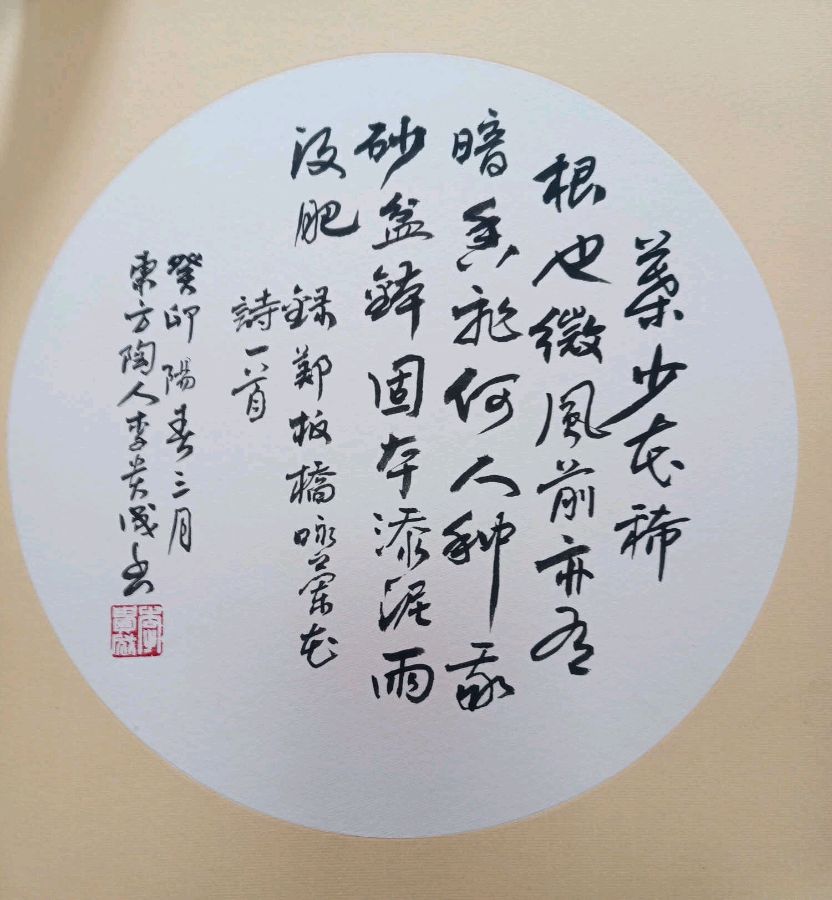 葉少花稀
根也微風前亦有
暗香飛何人種我
砂盆鉢固本添泥雨
没肥 録鄭板橋咏蘭花
詩一首
癸卯陽春三月
東方陶人李貴成書
李貴成